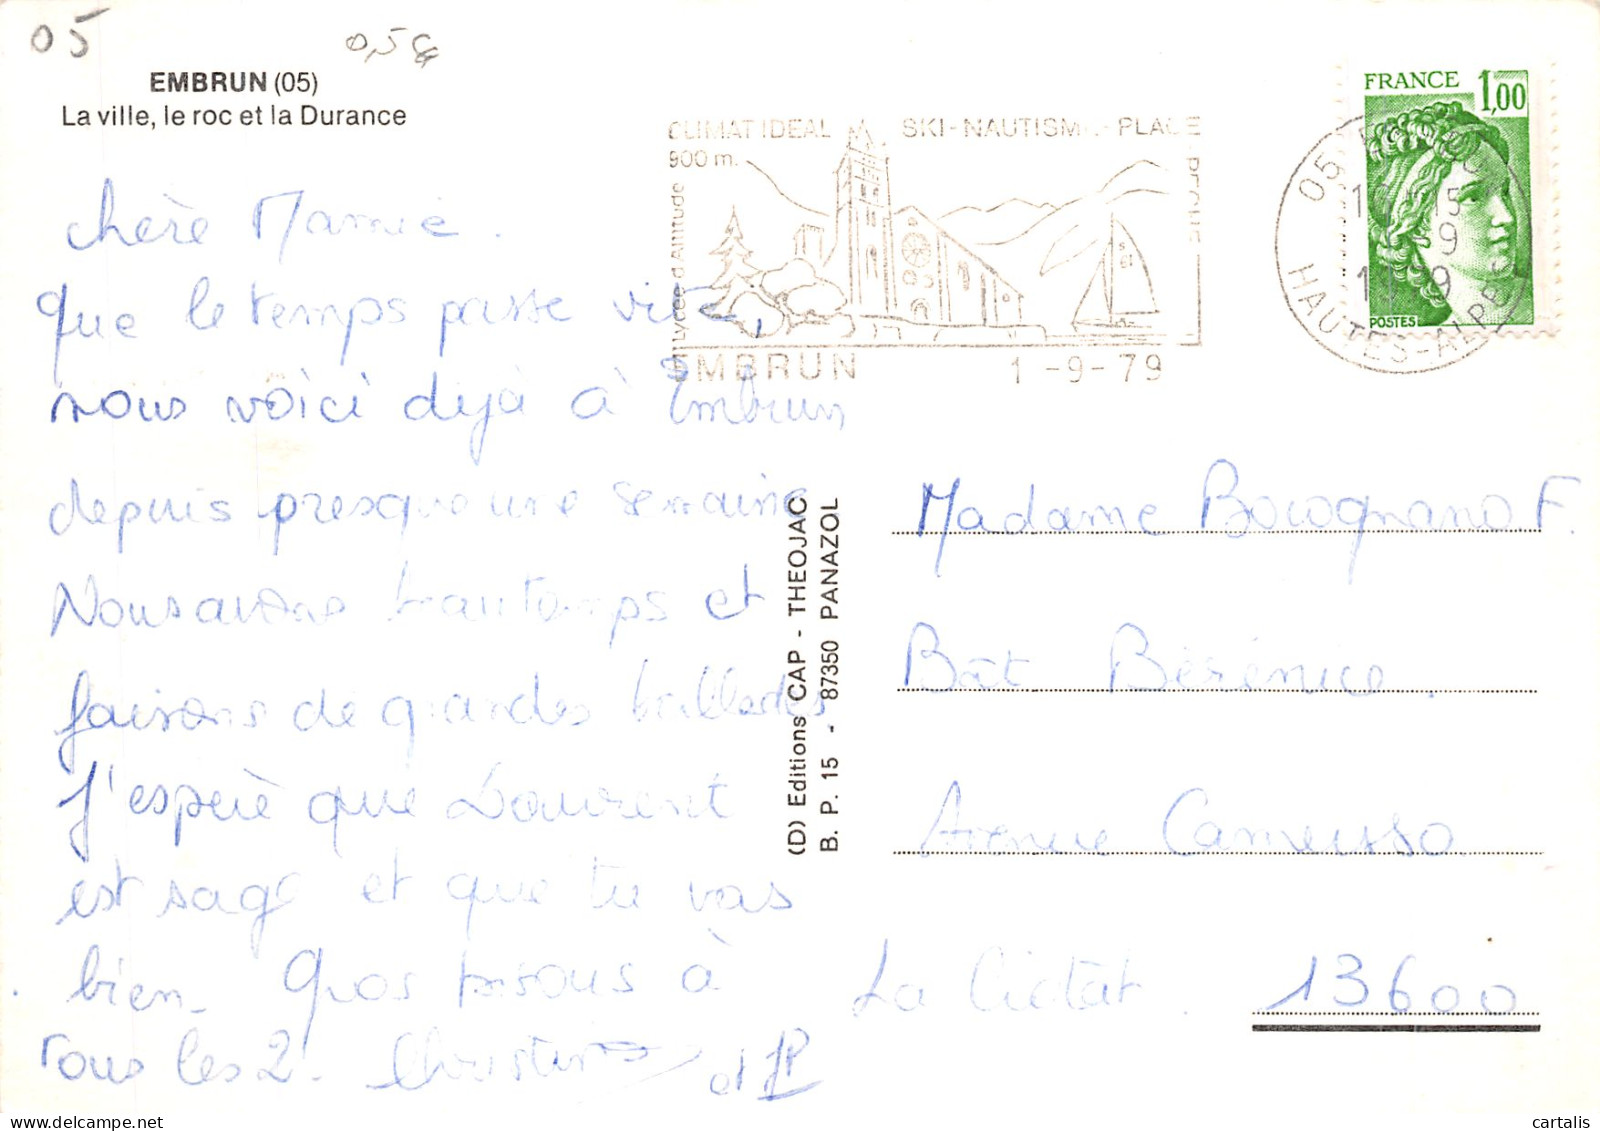 05
0,5€
EMBRUN (05)
La ville, le roc et la Durance
CLIMAT IDEAL SKI-NAUTISME-PLAGE
900 m.
Lycée d'Altitude
EMBRUN 1-9-79
FRANCE 1,00
POSTES
05
HAUTES-ALPES
chère Mamie.
que le temps passe vite,
nous voici déjà à Embrun
depuis presque une semaine
Nous avons beau temps et
faisons de grandes ballades.
J'espère que Laurent
est sage et que tu vas
bien. Gros bisous à
tous les 2. Christine
et JP
(D) Editions CAP - THEOJAC
B. P. 15 - 87350 PANAZOL
Madame Bocognano F.
Bât Bérénice.
Avenue Camusso
La Ciotat. 13600
cartalis